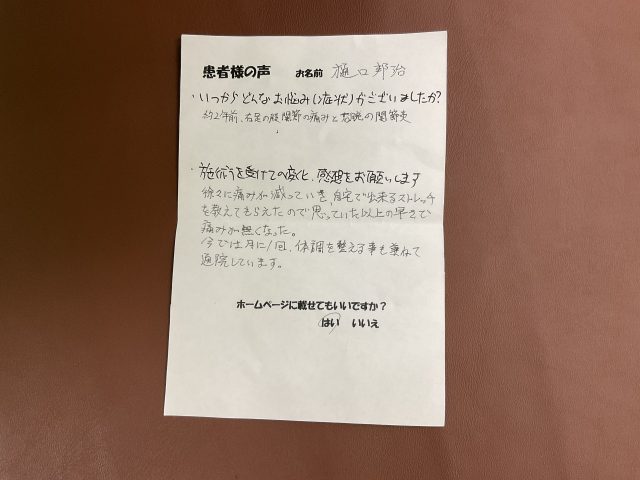 患者様の声 お名前 樋口邦治
・いつからどんなお悩み(症状)がございましたか?
約2年前、右足の股関節の痛みと右腕の関節炎
・施術を受けての変化、感想をお願いします
徐々に痛みが減っていき、自宅で出来るストレッチ
を教えてもらえたので思っていた以上の早さで
痛みが無くなった。
今では月に1回、体調を整える事も兼ねて
通院しています。
ホームページに載せてもいいですか?
はい いいえ